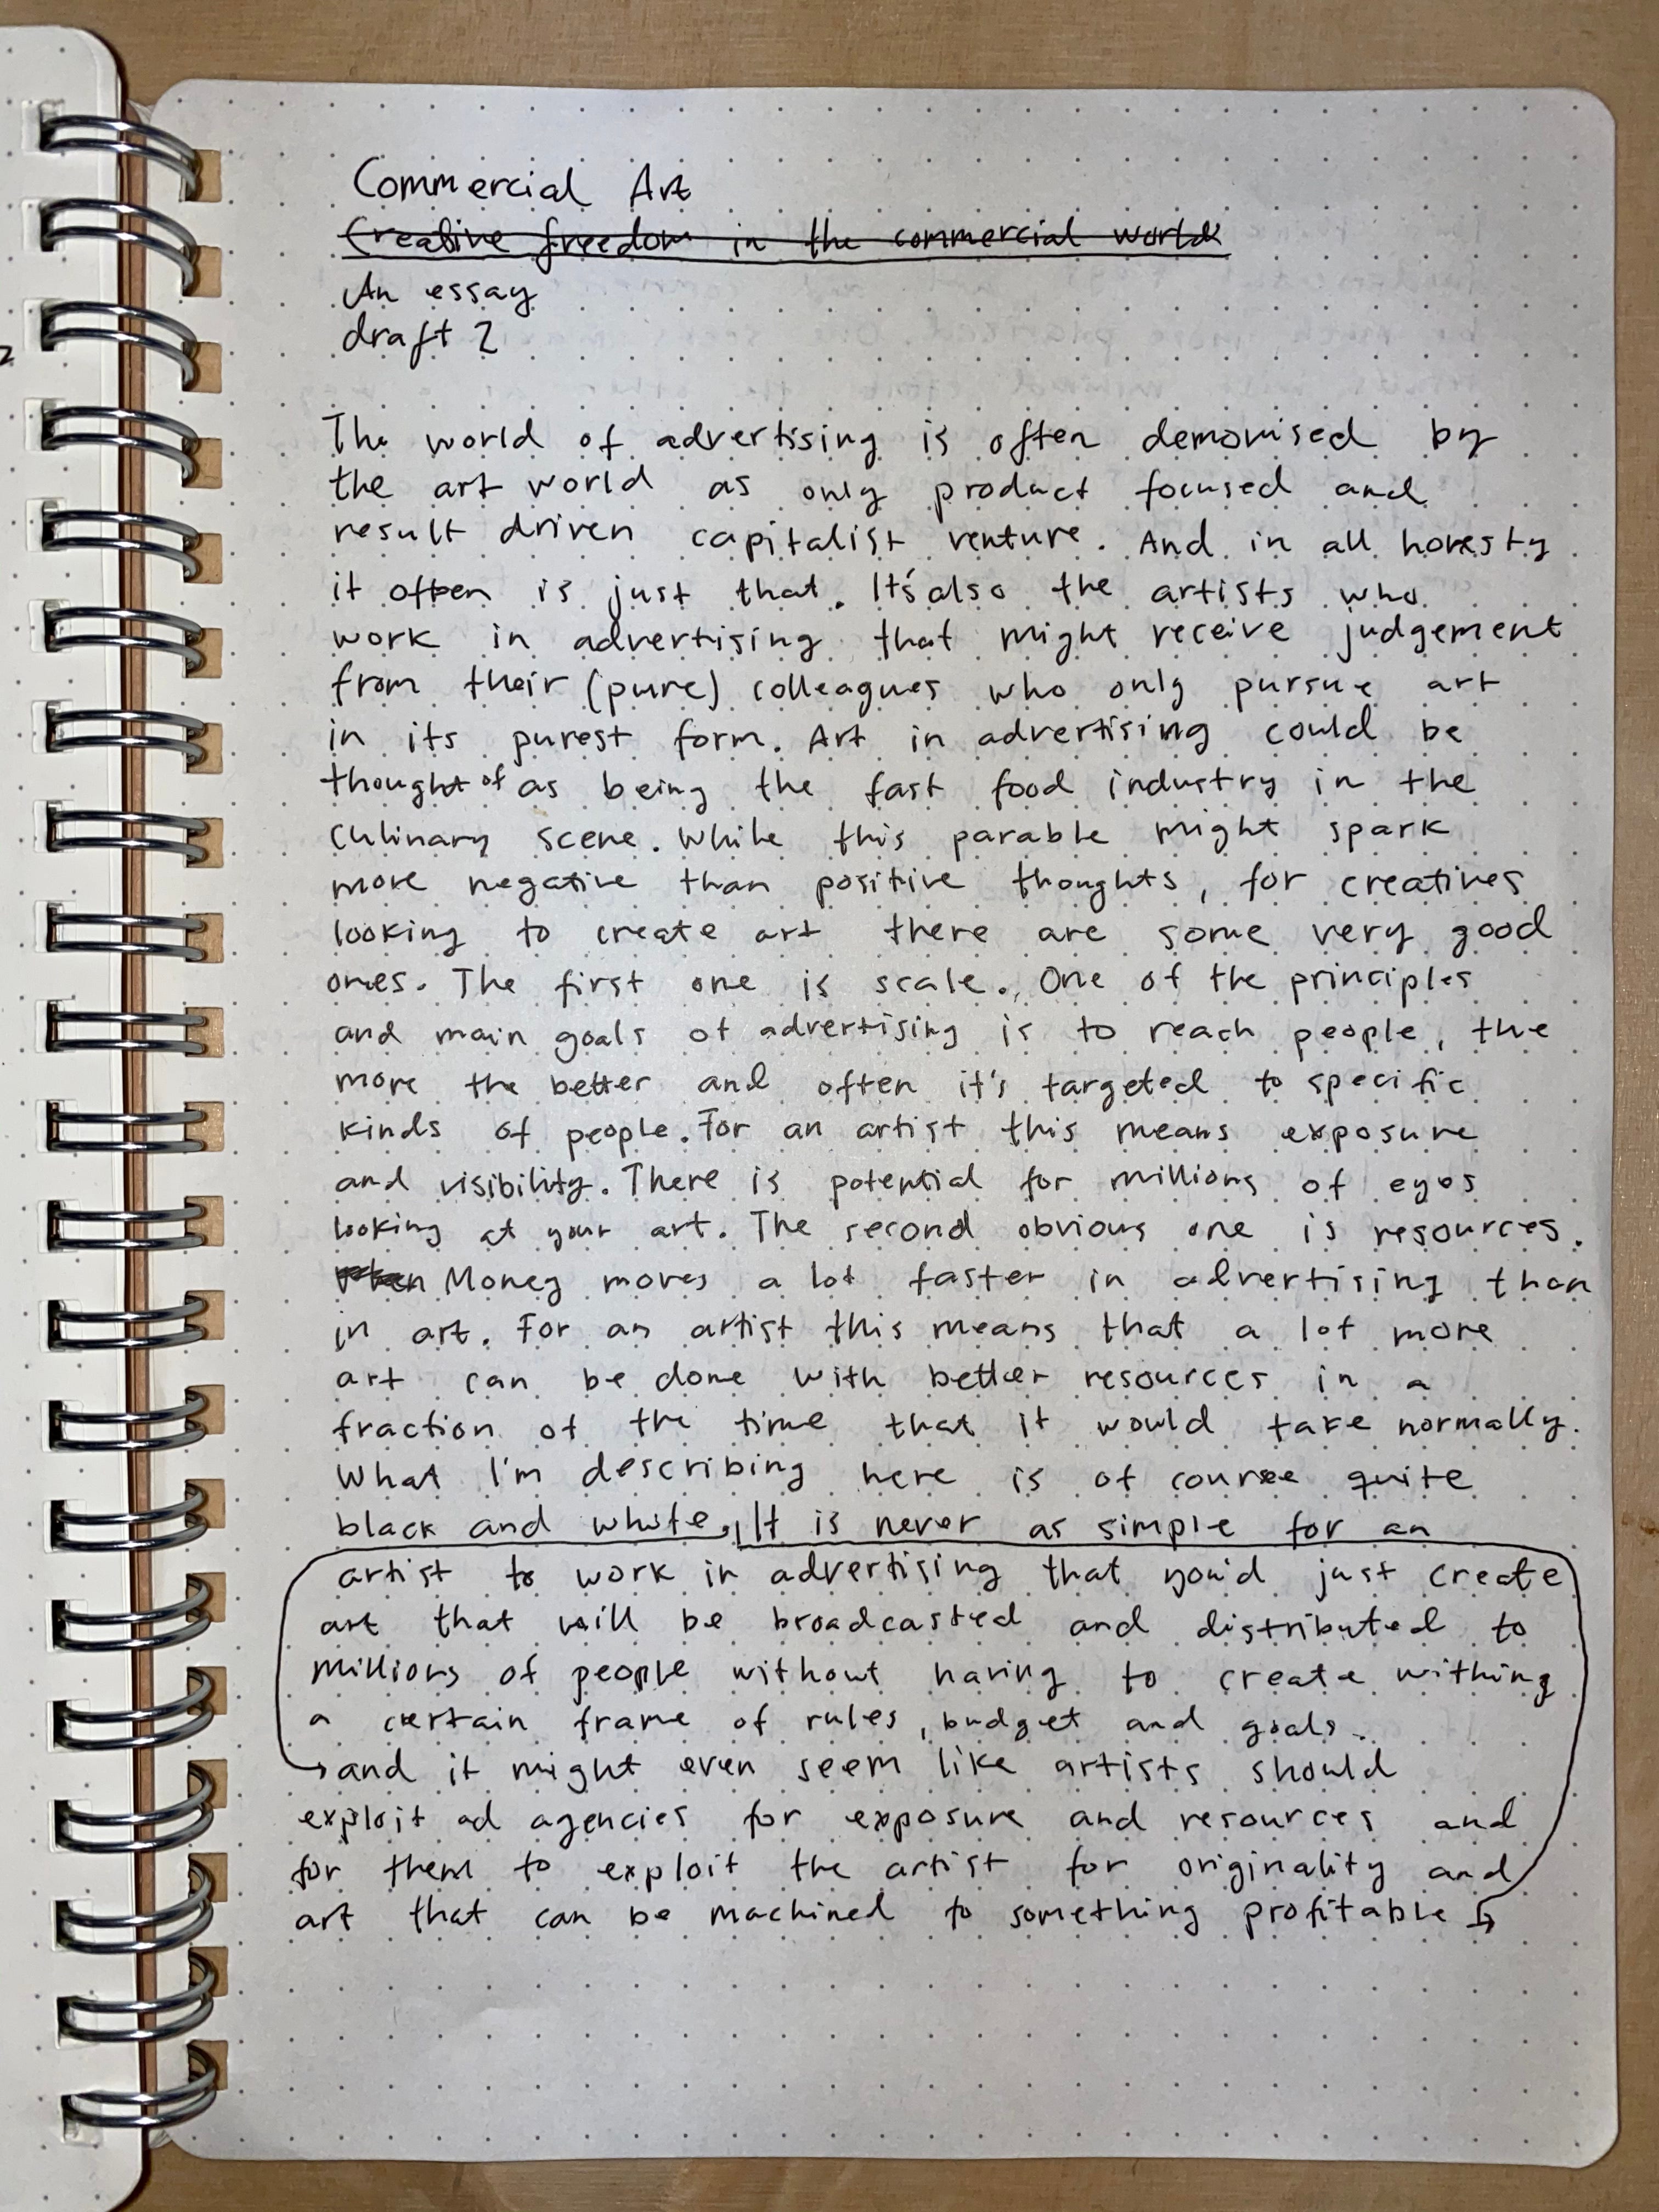 Commercial Art
Creative freedom in the commercial world
An essay
draft 2
The world of advertising is often demonised by
the art world as only product focused and
result driven capitalist venture. And in all honesty
it often is just that. It's also the artists who
work in advertising that might receive judgement
from their (pure) colleagues who only pursue art
in its purest form. Art in advertising could be
thought of as being the fast food industry in the
culinary scene. While this parable might spark
more negative than positive thoughts, for creatives
looking to create art there are some very good
ones. The first one is scale. One of the principles
and main goals of advertising is to reach people, the
more the better and often it's targeted to specific
kinds of people. For an artist this means exposure
and visibility. There is potential for millions of eyes
looking at your art. The second obvious one is resources.
Money moves a lot faster in advertising than
in art. For an artist this means that a lot more
art can be done with better resources in a
fraction of the time that it would take normally.
What I'm describing here is of course quite
black and white, It is never as simple for an
artist to work in advertising that you'd just create
art that will be broadcasted and distributed to
millions of people without having to create withing
a certain frame of rules, budget and goals.
and it might even seem like artists should
exploit ad agencies for exposure and resources and
for them to exploit the artist for originality and
art that can be machined to something profitable